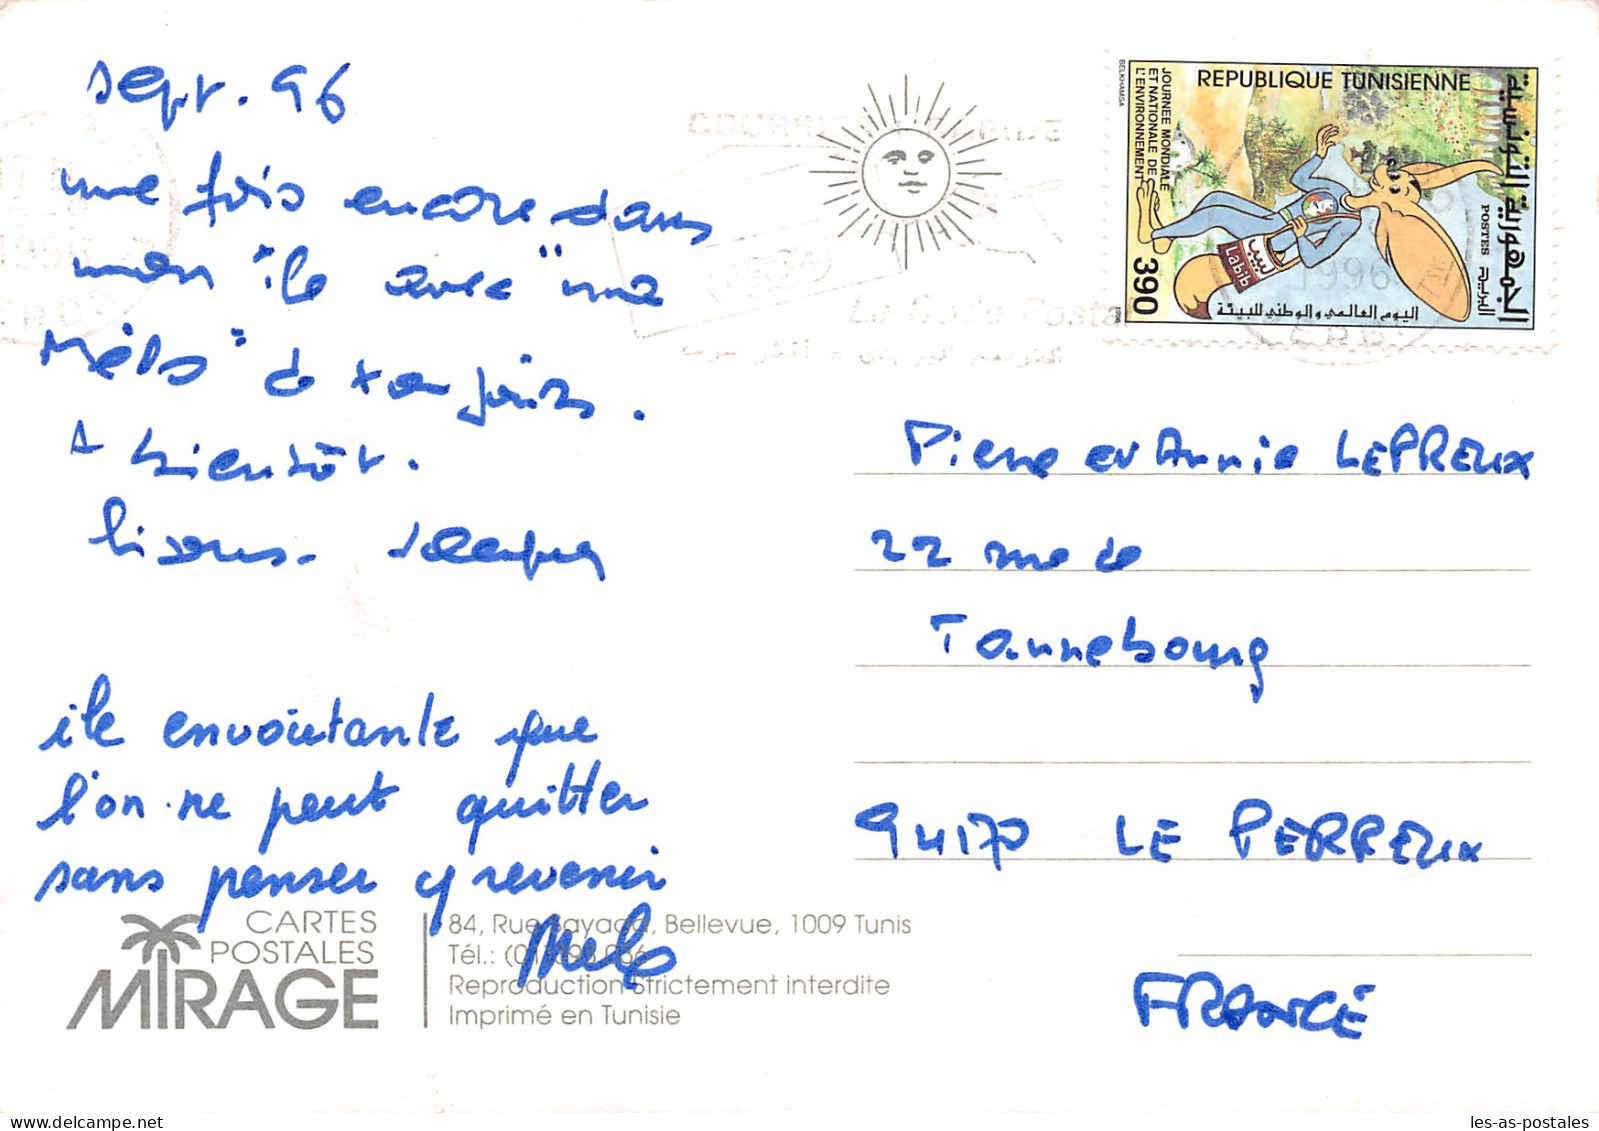 sept. 96
une fois encore dans
mon "île avec" une
"Mélo" de toujours.
A bientôt.
bisous. Jacques
île envoûtante que
l'on ne peut quitter
sans penser y revenir
Melo
CARTES
POSTALES
MIRAGE
84, Rue Sayada, Bellevue, 1009 Tunis
Tél.: (01)
Reproduction Strictement interdite
Imprimé en Tunisie
REPUBLIQUE TUNISIENNE
الجمهورية التونسية
JOURNEE MONDIALE
ET NATIONALE DE
L'ENVIRONNEMENT
POSTES البريدية
لبيب
Labib
390
اليوم العالمي والوطني للبيئة
BELKHAMSA
1996
Le Code Postal
Pierre et Annie LEPREUX
22 rue de
Tannebourg
94170 LE PERREUX
FRANCE
les-as-postales